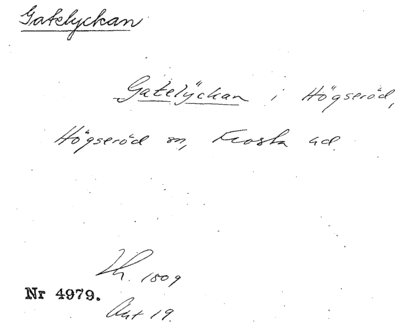 Gatelyckan
Gatelÿckan i Högseröd,
Högseröd sn, Frosta hd.
1809
Nr 4979.
Akt 19.